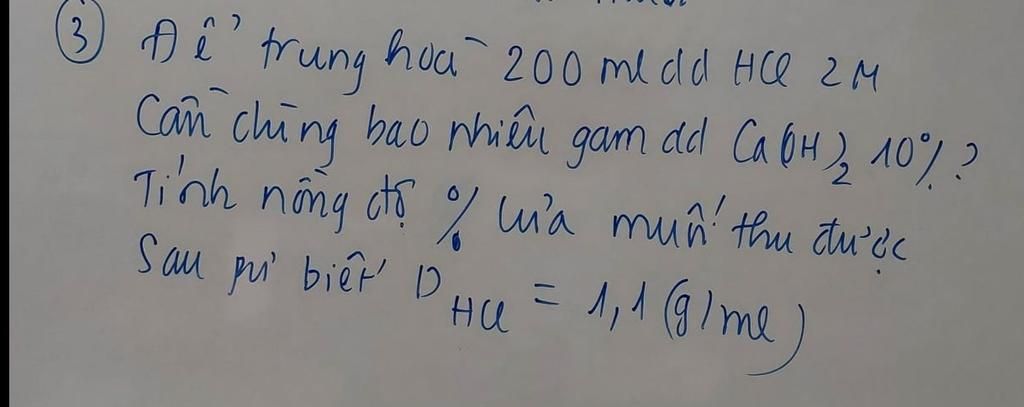 ③ Để trung hoà 200 ml dd HCl 2M
Cần dùng bao nhiêu gam dd Ca(OH)₂ 10%?
Tính nồng độ % của muối thu được
Sau pư biết D HCl = 1,1 (g/ml)